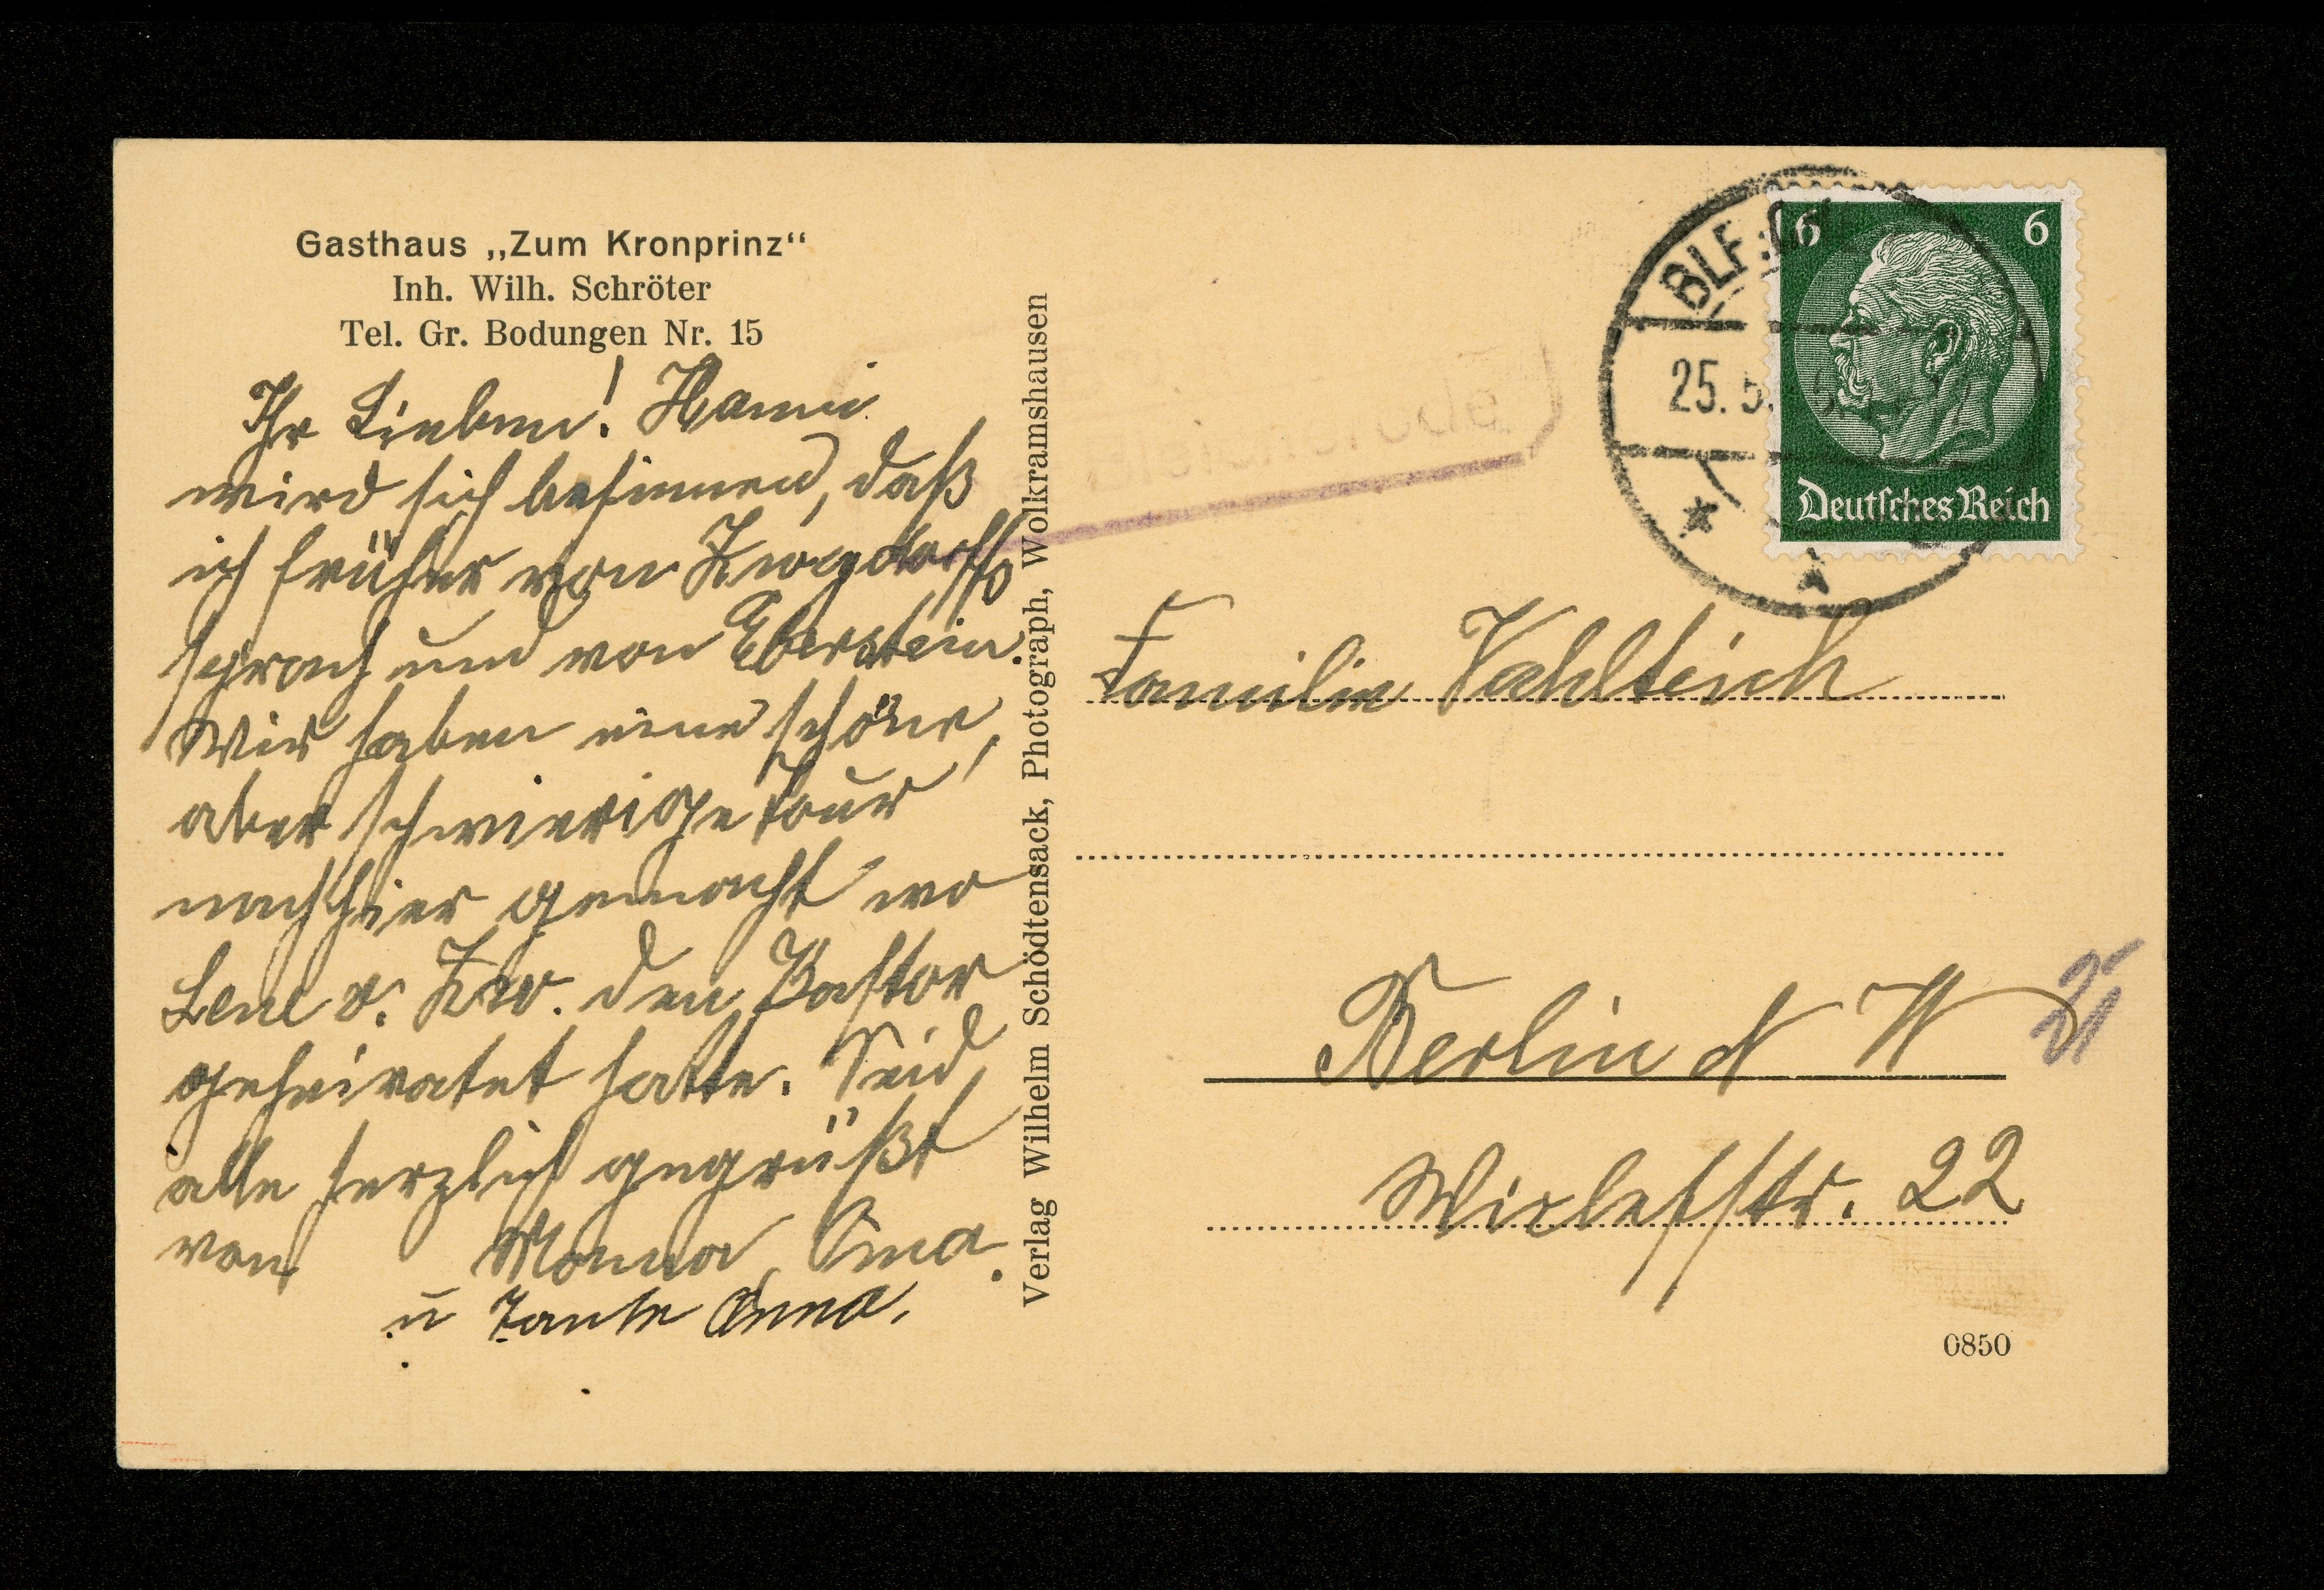 Gasthaus „Zum Kronprinz“
Inh. Wilh. Schröter
Tel. Gr. Bodungen Nr. 15
Ihr Lieben! Hanni
wird sich besinnen, daß
ich früher von Zwegdorffs
sprach und von Eberstein.
Wir haben eine schöne,
aber schwierige Tour
nach hier gemacht wo
Lene v. Zw. den Pastor
geheiratet hatte. Seid
alle herzlich gegrüßt
von Oma.
u Tante Anna.
Verlag Wilhelm Schödtensack, Photograph, Wolkramshausen
BLF
25. 5.
6 6
Deutsches Reich
Familie Vahlteich
Berlin N W 21
Wiclefstr. 22
0850